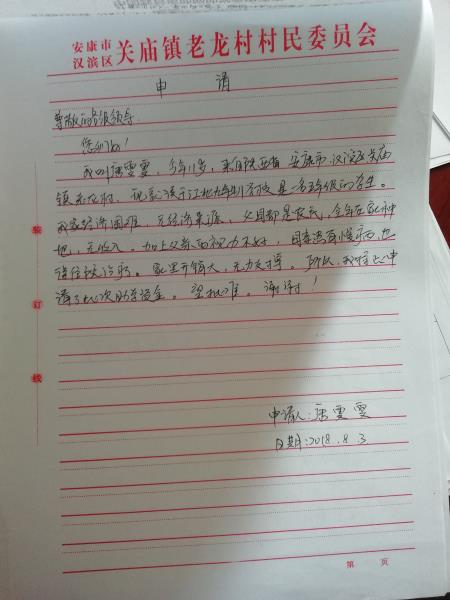 安康市
汉滨区 关庙镇老龙村村民委员会
申 请
尊敬的各级领导
您们好！
我叫 雯雯，今年11岁，来自陕西省安康市汉滨区关庙
镇老龙村，现就读于江北九年制学校是一名五年级的学生。
我家经济困难，无经济来源，父母都是农民，全年在家种
地，无收入。加上父亲的视力不好，母亲患有慢病，也
往住院治疗。家里开销大，无力支撑。所以，我特此申
请了此次助学资金。望批准。谢谢！
装
订
线
申请人： 雯雯
日期：2018.8.3
第 页